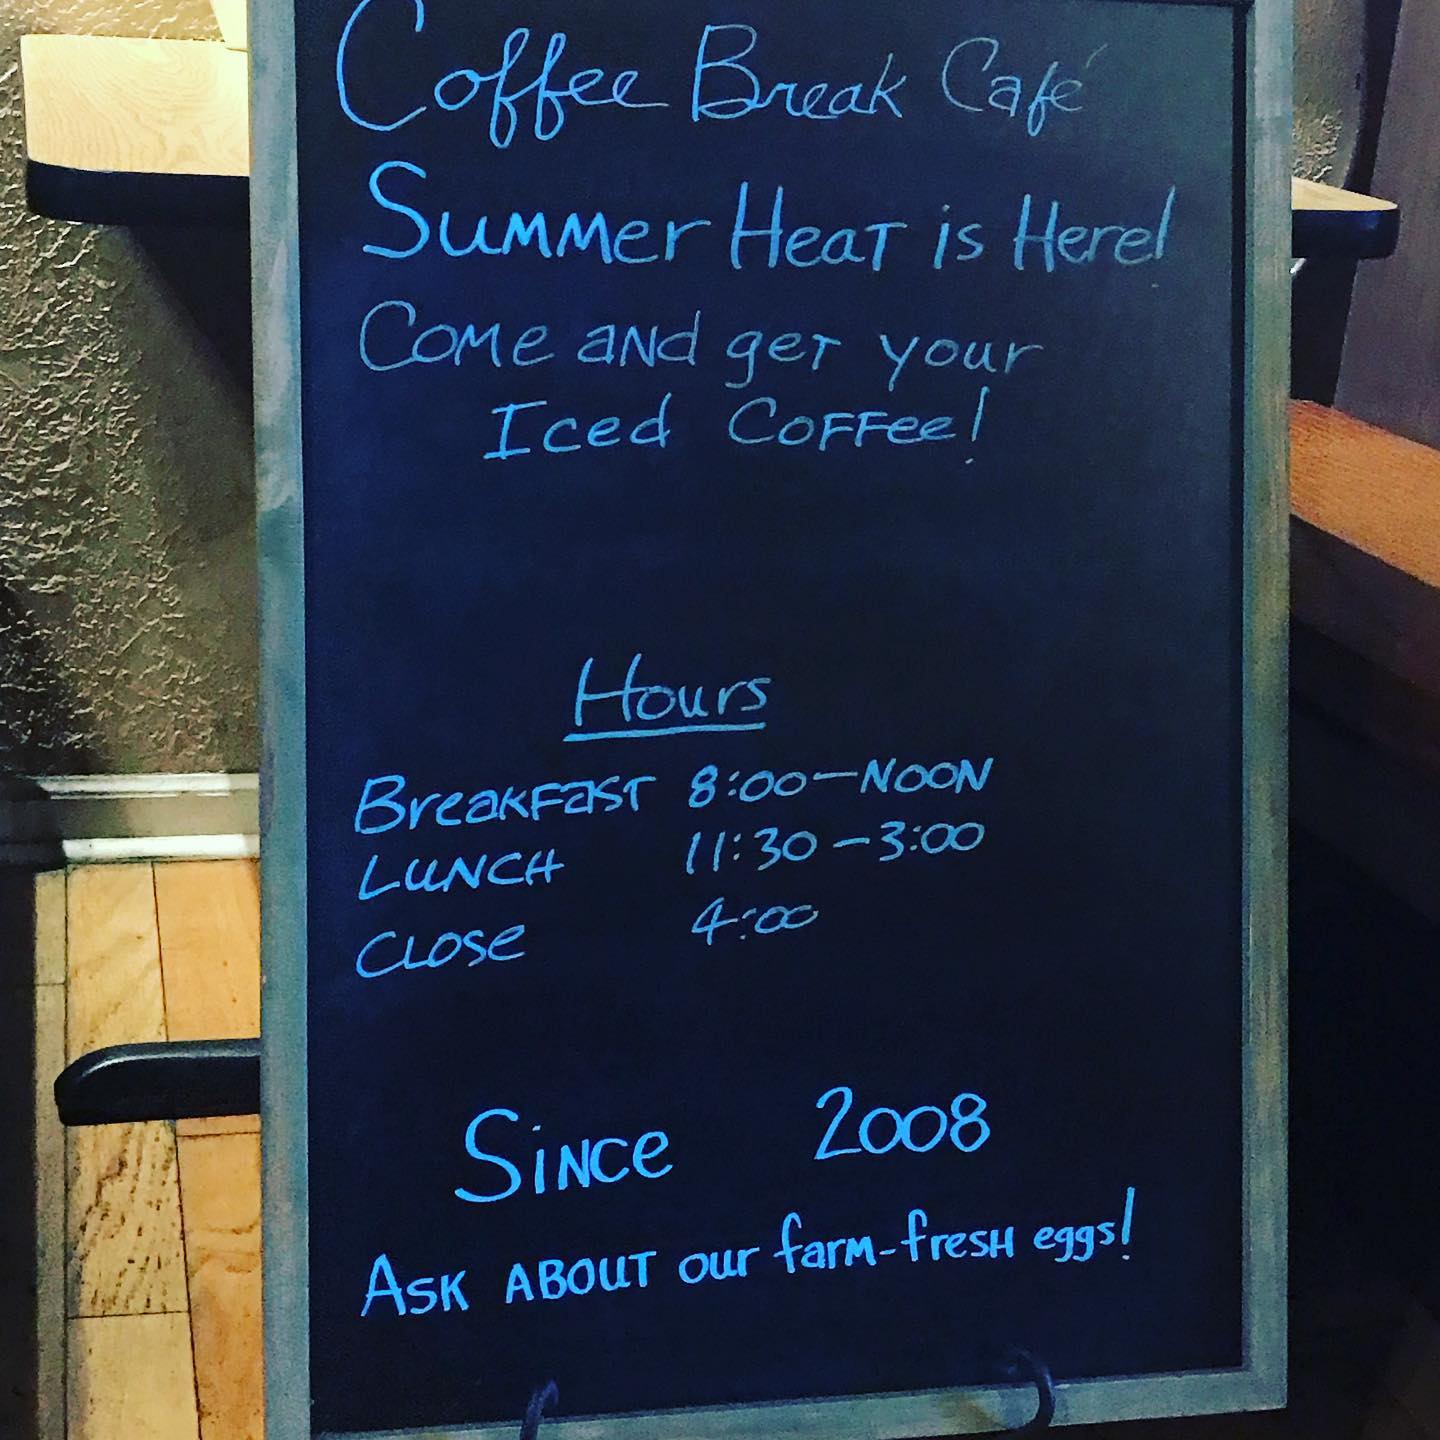 Coffee Break Café
Summer Heat is Here!
Come and get your
Iced Coffee!
Hours
Breakfast 8:00-NOON
LUNCH 11:30-3:00
CLOSE 4:00
Since 2008
Ask ABOUT our farm-fresh eggs!